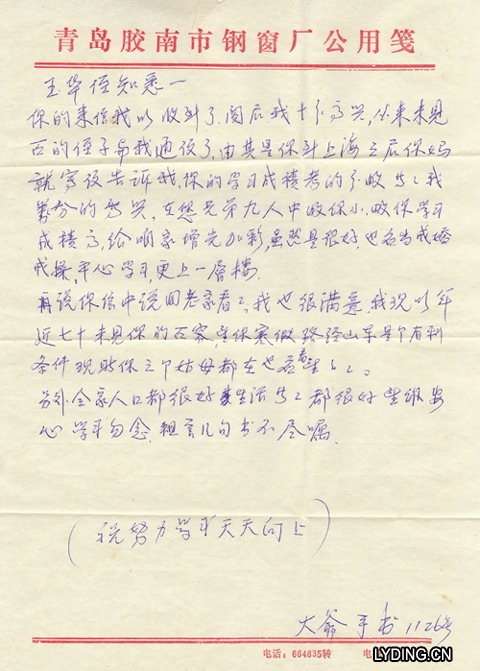 青岛胶南市钢窗厂公用笺
王华侄知悉一
你的来信我以收到了阅后我十分高兴，从来未见
面的侄子与我通信了，由其是你到上海之后你妈
就写信告诉我，你的学习成绩考的分
的高兴，在您兄弟九人中你小，你学习
成绩高，给咱家增光加彩，虽然是很好，也
戒操，平心学习，更上一层楼
再说你信中说回老家看看，我也很满意，我现以年
近七十未见你的面容，你寒假路径山东是个有利
条件现时你三个姑母都在也
另外全家人口都很好生活都很好
心学习勿念，粗言几句书不尽嘱
（祝努力学习天天向上）
大爺手书11.26号
电话：664635转
LYDING.CN